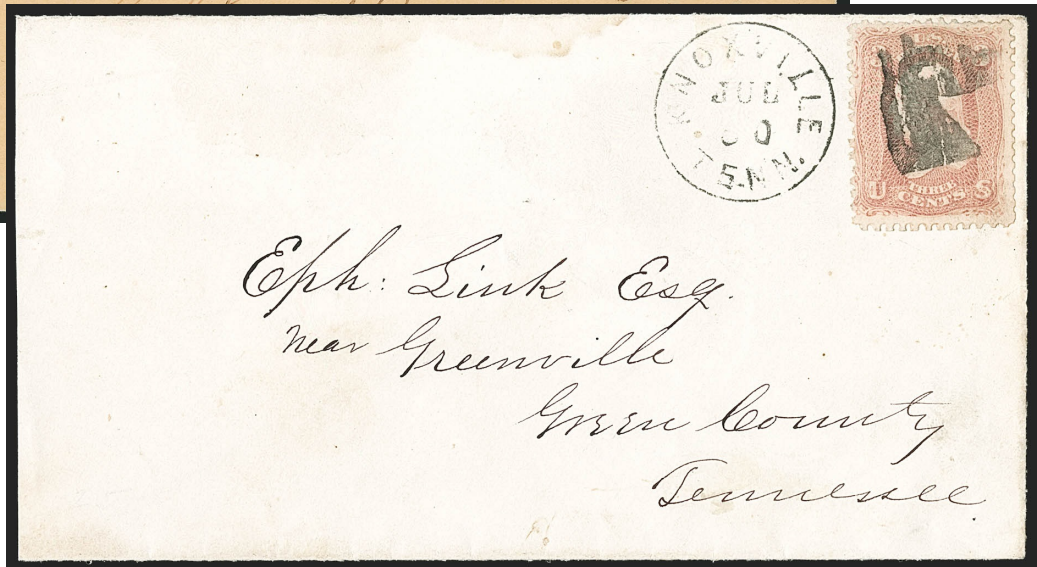 KNOXVILLE
JUL
30
TENN.
U.S.
3 3
U THREE S
CENTS
Eph: Link Esq.
near Greenville
Green County
Tennessee